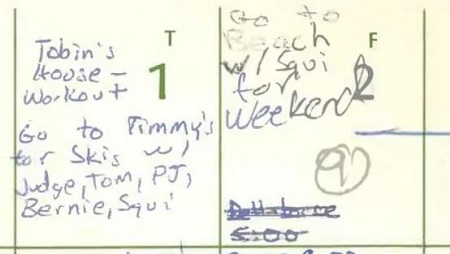 T
Tobin's
House -
Workout
1
Go to Timmy's
for Skis w/
Judge, Tom, PJ,
Bernie, Squi
Go to
Beach
F
w/ Squi
for
2
Weekend
9
5:00